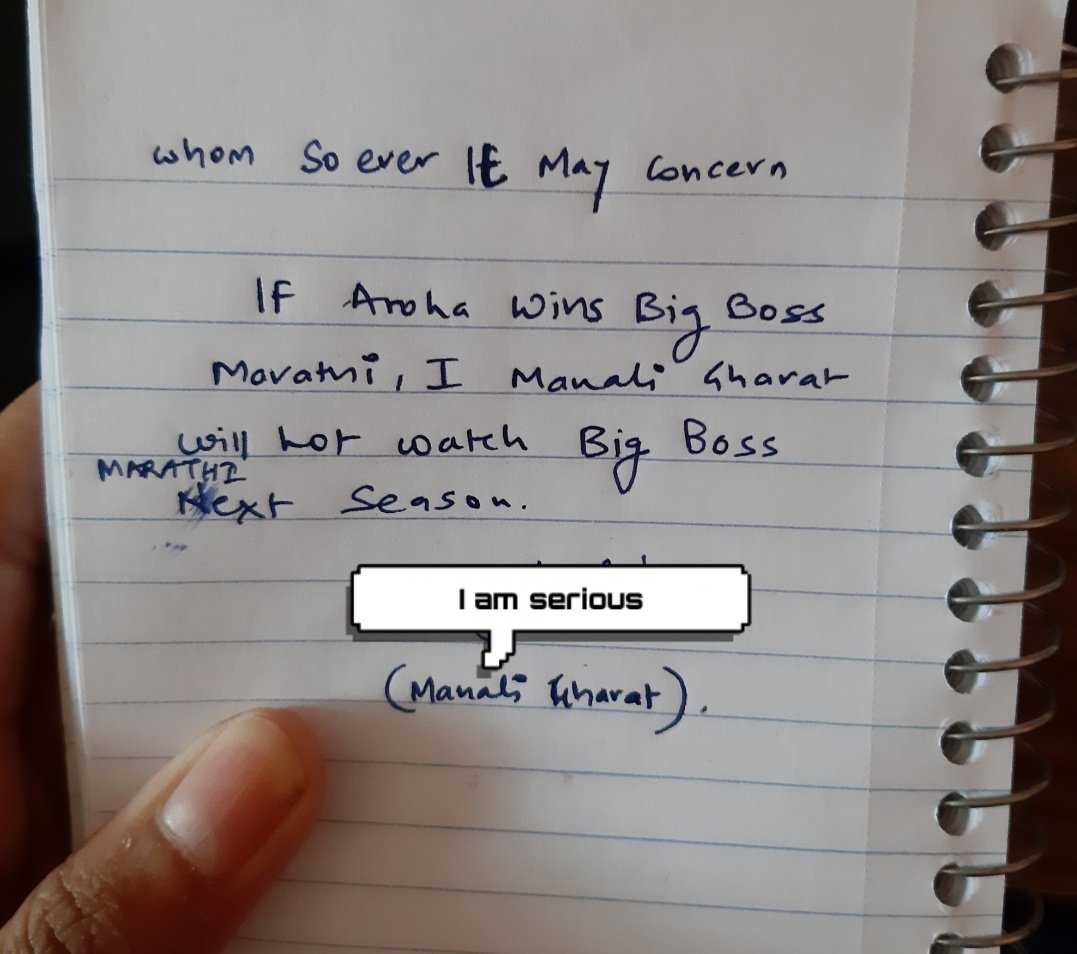 whom So ever It May Concern
If Aroha Wins Big Boss
Marathi, I Manali Gharat
will not watch Big Boss
MARATHI
Next Season.
I am serious
(Manali Gharat).